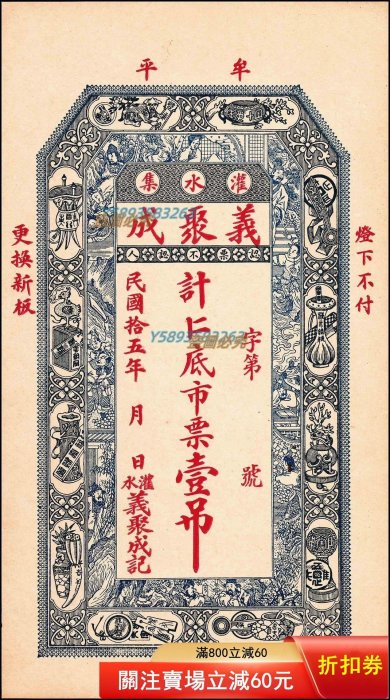 牟平
灌水集
義聚成
認票不認人
燈下不付
字第 號
計上底市票壹吊
民國拾五年 月 日
灌水義聚成記
更換新板
滿800立減60
關注賣場立減60元
折扣券